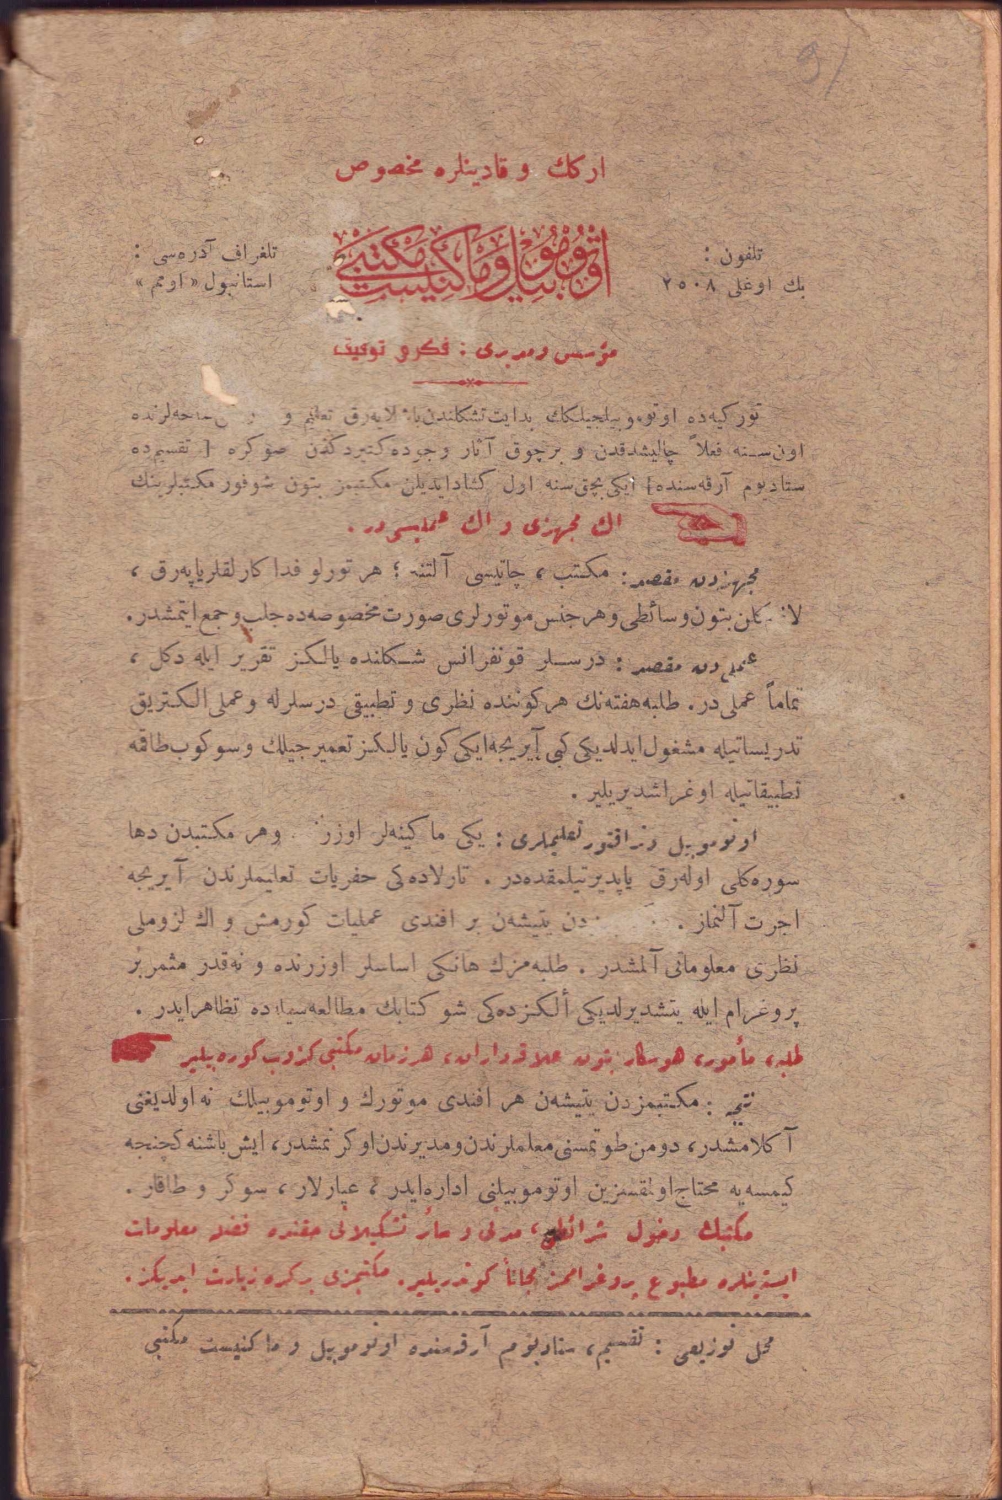 اركك و قادينلره مخصوص
تلفون :
بك اوغلى ٢٥٠٨
اوتوموبيل و ماكنيست مكتبى
تلغراف آدره‌سى :
استانبول « اومم »
مؤسس ومديرى : فكرى توفيق
توركيه‌ده اوتوموبيلجيلكك بدايت تشكلندن باشلايه‌رق تعليم و ساحه‌لرنده
اون سنه فعلاً چاليشدقدن و برچوق آثار وجوده كتيردكدن صوكره [ تقسيمده
ستاديوم آرقه‌سنده ] ايكى بچق سنه اول كشاد ايديلن مكتبمز بتون شوفور مكتبلرينك
اك مجهزى و اك عمليسى در .
مجهزدن مقصد : مكتب ، چاتيسى آلتنه ؛ هر تورلو فداكارلقلر ياپه‌رق ،
بتون وسائطى وهر جنس موتورلرى صورت مخصوصه‌ده جلب وجمع ايتمشدر .
عملى دن مقصد : درسلر قونفرانس شكلنده يالكز تقرير ايله دكل ،
تماماً عملى در . طلبه هفته‌نك هركوننده نظرى و تطبيقى درسلرله وعملى الكتريق
تدريساتيله مشغول ايدلديكى كبى آيريجه ايكى كون يالكز تعميرجيلك وسوكوب طاقمه
تطبيقاتيله اوغراشديريلير .
اوتوموبيل وتراقتور تعليملرى : يكى ماكينه‌لر وهر مكتبدن دها
سوره‌كلى اوله‌رق ياپديرتيلمقده‌در . تارلاده‌كى حفريات تعليملرندن آيريجه
اجرت آلنماز . دن يتيشه‌ن بر افندى عمليات كورمش و اك لزوملى
نظرى معلوماتى آلمشدر . طلبه‌مزك هانكى اساسلر اوزرنده و نه‌قدر مثمر بر
پروغرام ايله يتشديرلديكى ألكزده‌كى شو كتابك مطالعه‌سيله ده تظاهر ايدر .
طلبه ، مأمور ، هوسكار بتون علاقه‌داران ، هر زمان مكتبى كزوب كوره بيلير
نتيجه : مكتبمزدن يتيشه‌ن هر افندى موتورك و اوتوموبيلك نه اولديغنى
آكلامشدر ، دومن طوتمسنى معلملرندن ومديرندن اوكرنمشدر ، ايش باشنه كچنجه
كيمسه‌يه محتاج اولمقسزين اوتوموبيلنى اداره ايدر ، عيارلار ، سوكر و طاقار .
مكتبك دخول شرائطى ، مدتى و سائر تشكيلاتى حقنده فضله معلومات
ايستينلره مطبوع پروغراممز مجاناً كوندريلير . مكتبمزى بركره زيارت ايديكز .
محل توزيعى : تقسيم ، ستاديوم آرقه‌سنده اوتوموبيل و ماكنيست مكتبى